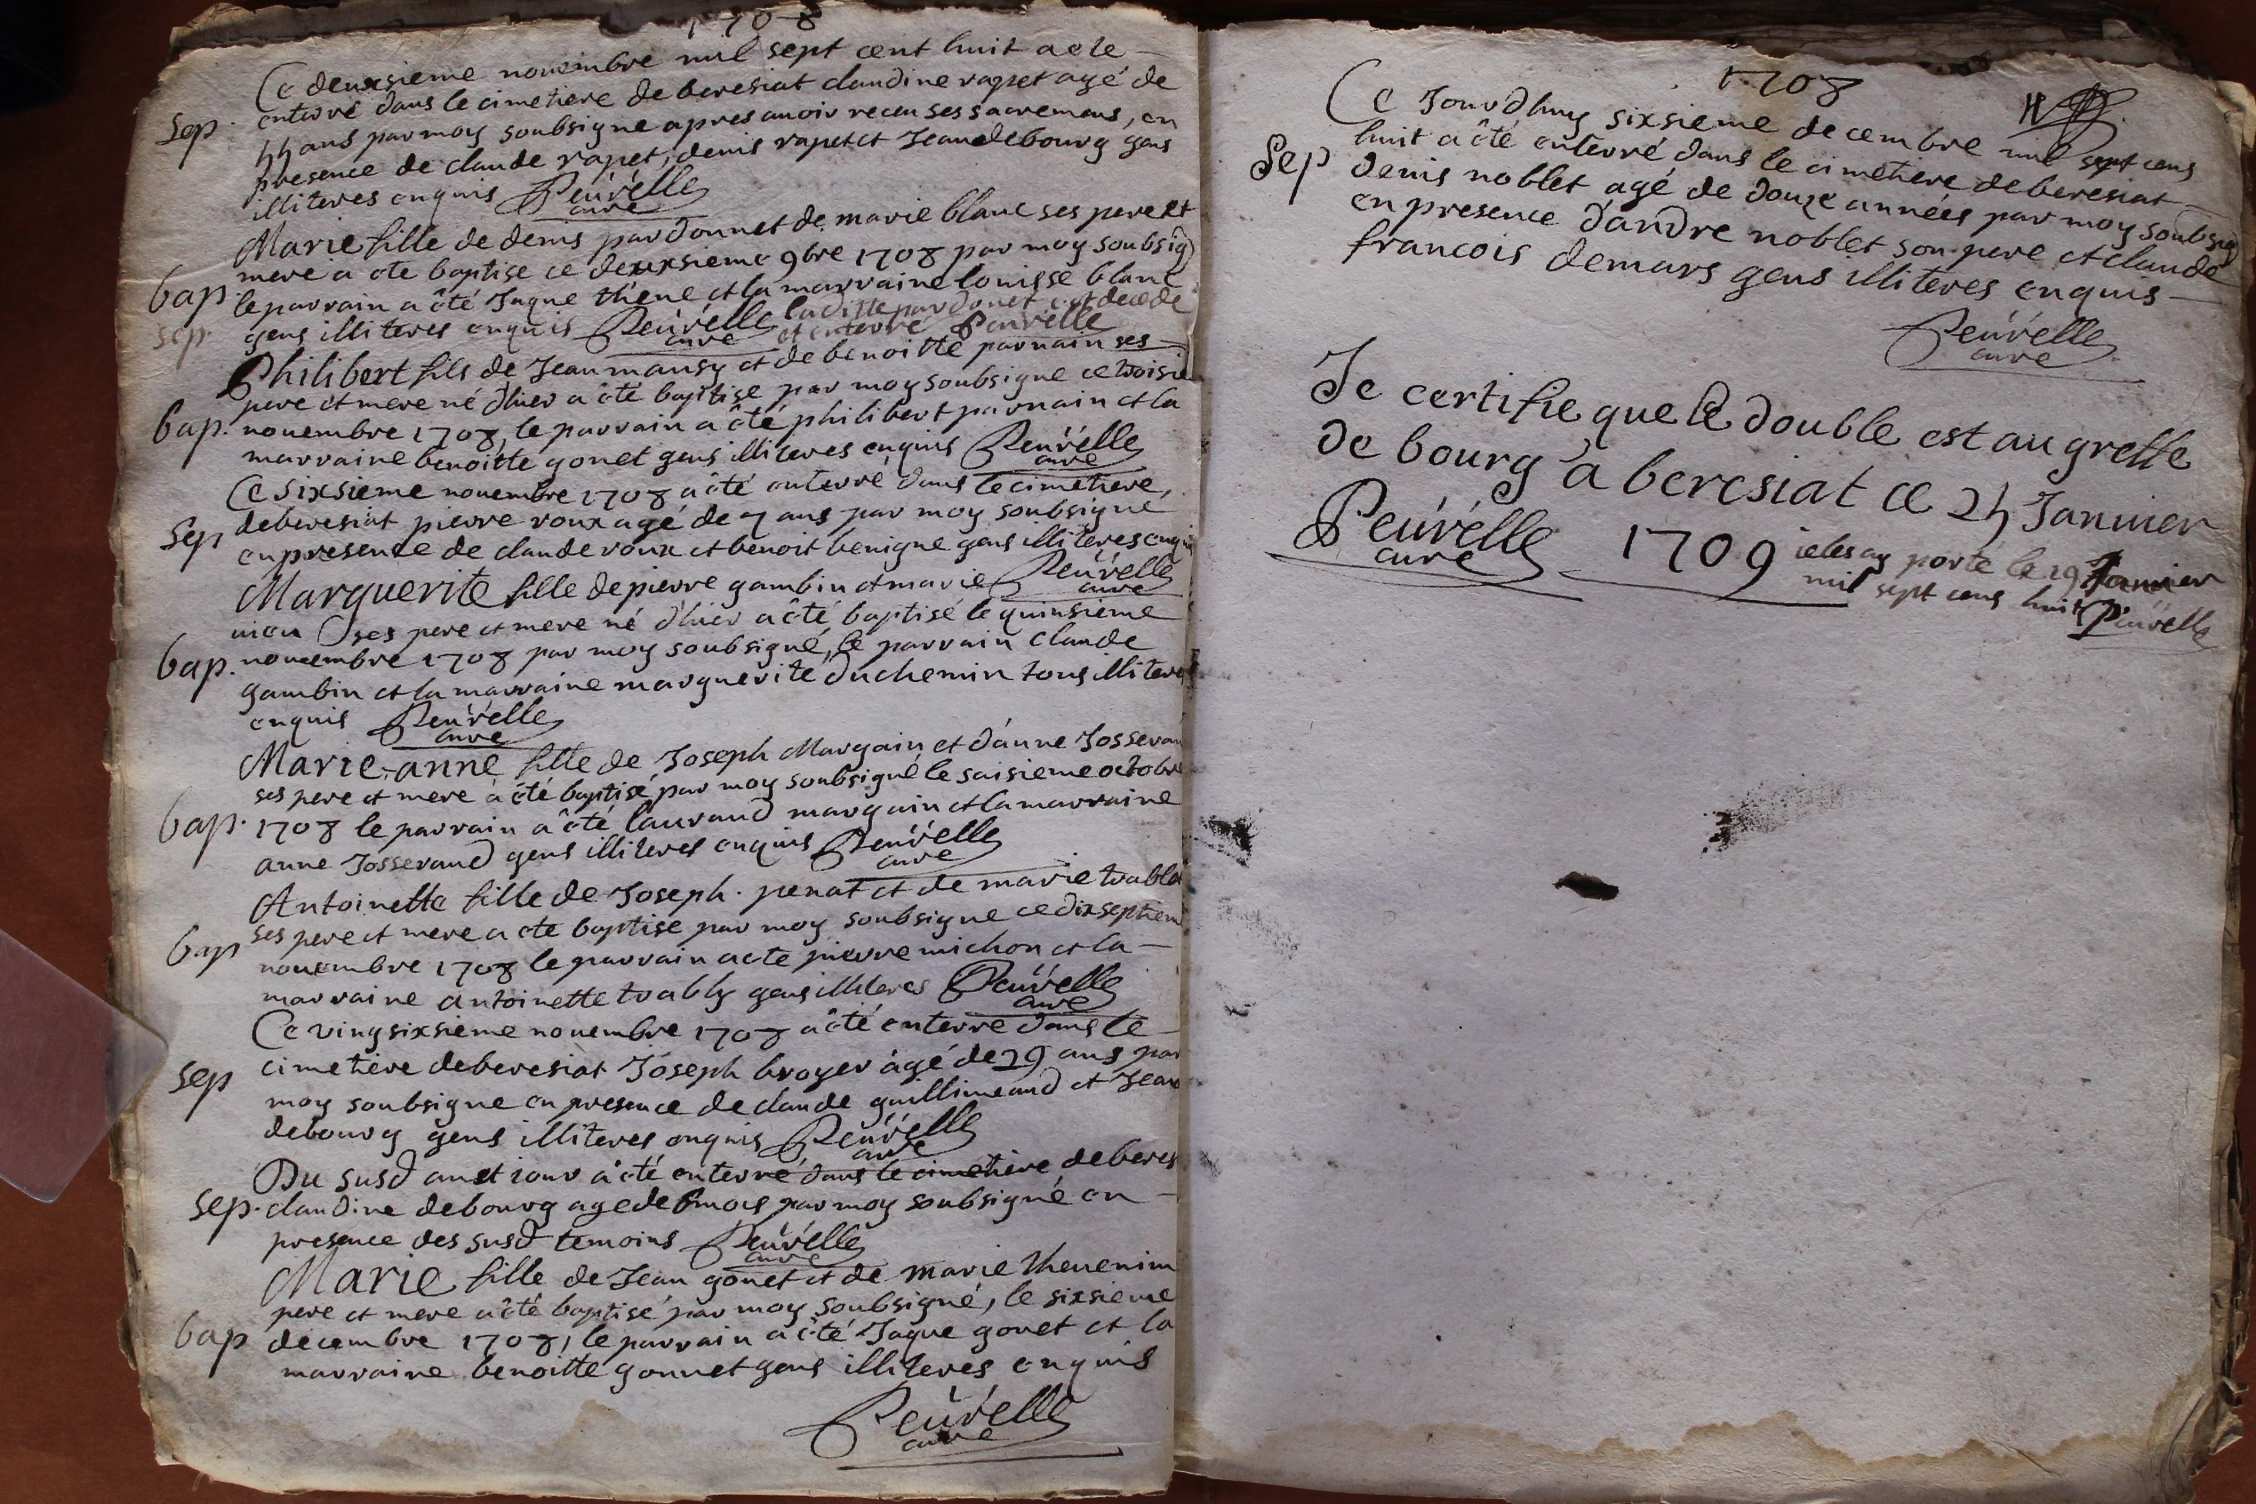 1708
Ce deuxsieme nouembre mil sept cent huit a ete
Sep. enterré dans le cimetiere de beresiat claudine rapet agé de
44 ans par moy soubsigne apres auoir receu ses sacremens, en
presence de claude rapet, denis rapet et Jean debourg gens
illiteres enquis Peuvrélle curé
Marie fille de denis pardonnet de marie blanc ses pere et
mere a ete baptise ce deuxsieme 9bre 1708 par moy soubsig
bap le parrain a été Jaque thene et la marraine louisse blanc
sep. gens illiteres enquis Peuvrélle curé laditte pardonet est decedé
et enterré Peuvrelle
Philibert fils de Jean mansy et de benoitte parnain ses
pere et mere né dhier a été baptise par moy soubsigne ce troisie
bap. nouembre 1708, le parrain a été philibert parnain et la
marraine benoitte gonet gens illiteres enquis Peuvrélle curé
Ce sixsieme nouembre 1708 a été enterré dans le cimetiere,
Sep de beresiat pierre roux agé de 7 ans par moy soubsigne
en presence de claude roux et benoit benigne gens illiteres enquis
Marguerite fille de pierre gambin et marie Peuvrélle curé
uieu ses pere et mere né dhier a été baptisé le quinsieme
bap. nouembre 1708 par moy soubsigné, le parrain claude
gambin et la marraine marguerite duchemin tous illiteres
enquis Peuvrélle curé
Marie-anne fille de Joseph Margain et d'anne Josseran
ses pere et mere a été baptisé par moy soubsigné le saisieme octobre
bap. 1708 le parrain a été laurand margain et la marraine
anne Josserand gens illiteres enquis Peuvrélle curé
Antoinette fille de Joseph. penat et de marie trabla
ses pere et mere a ete baptise par moy soubsigne ce dixseptiem
bap nouembre 1708 le parrain a ete pierre michon et la
marraine antoinette trably gens illiteres Peuvrélle curé
Ce vingsixsieme nouembre 1708 a été enterré dans le
sep cimetiere de beresiat Joseph broyer agé de 29 ans par
moy soubsigne en presence de claude guillimeaud et Jean
debourg gens illiteres enquis Peuvrélle curé
Du susd an et iour a été enterré dans le cimetiere de beres
sep. claudine debourg age de 6 mois par moy soubsigné en
presence des susd temoins Peuvrélle curé
Marie fille de Jean gonet et de marie theuenin
pere et mere a été baptisé par moy soubsigné, le sixsieme
bap decembre 1708, le parrain a été Jaque gonet et la
marraine benoitte gonnet gens illiteres enquis
Peuvrélle curé
1708
Ce Jourdhuy sixsieme decembre mil sept cens
huit a été enterré dans le cimetiere de beresiat
Sep denis noblet agé de douze années par moy soubsig
en presence d'andre noblet son pere et claude
francois demars gens illiteres enquis
Peuvrélle
curé
Je certifie que le double est au greffe
de bourg a beresiat ce 24 Januier
Peuvrélle curé 1709 ie les ay porté le 29 Januier
mil sept cens huit Peuvrelle